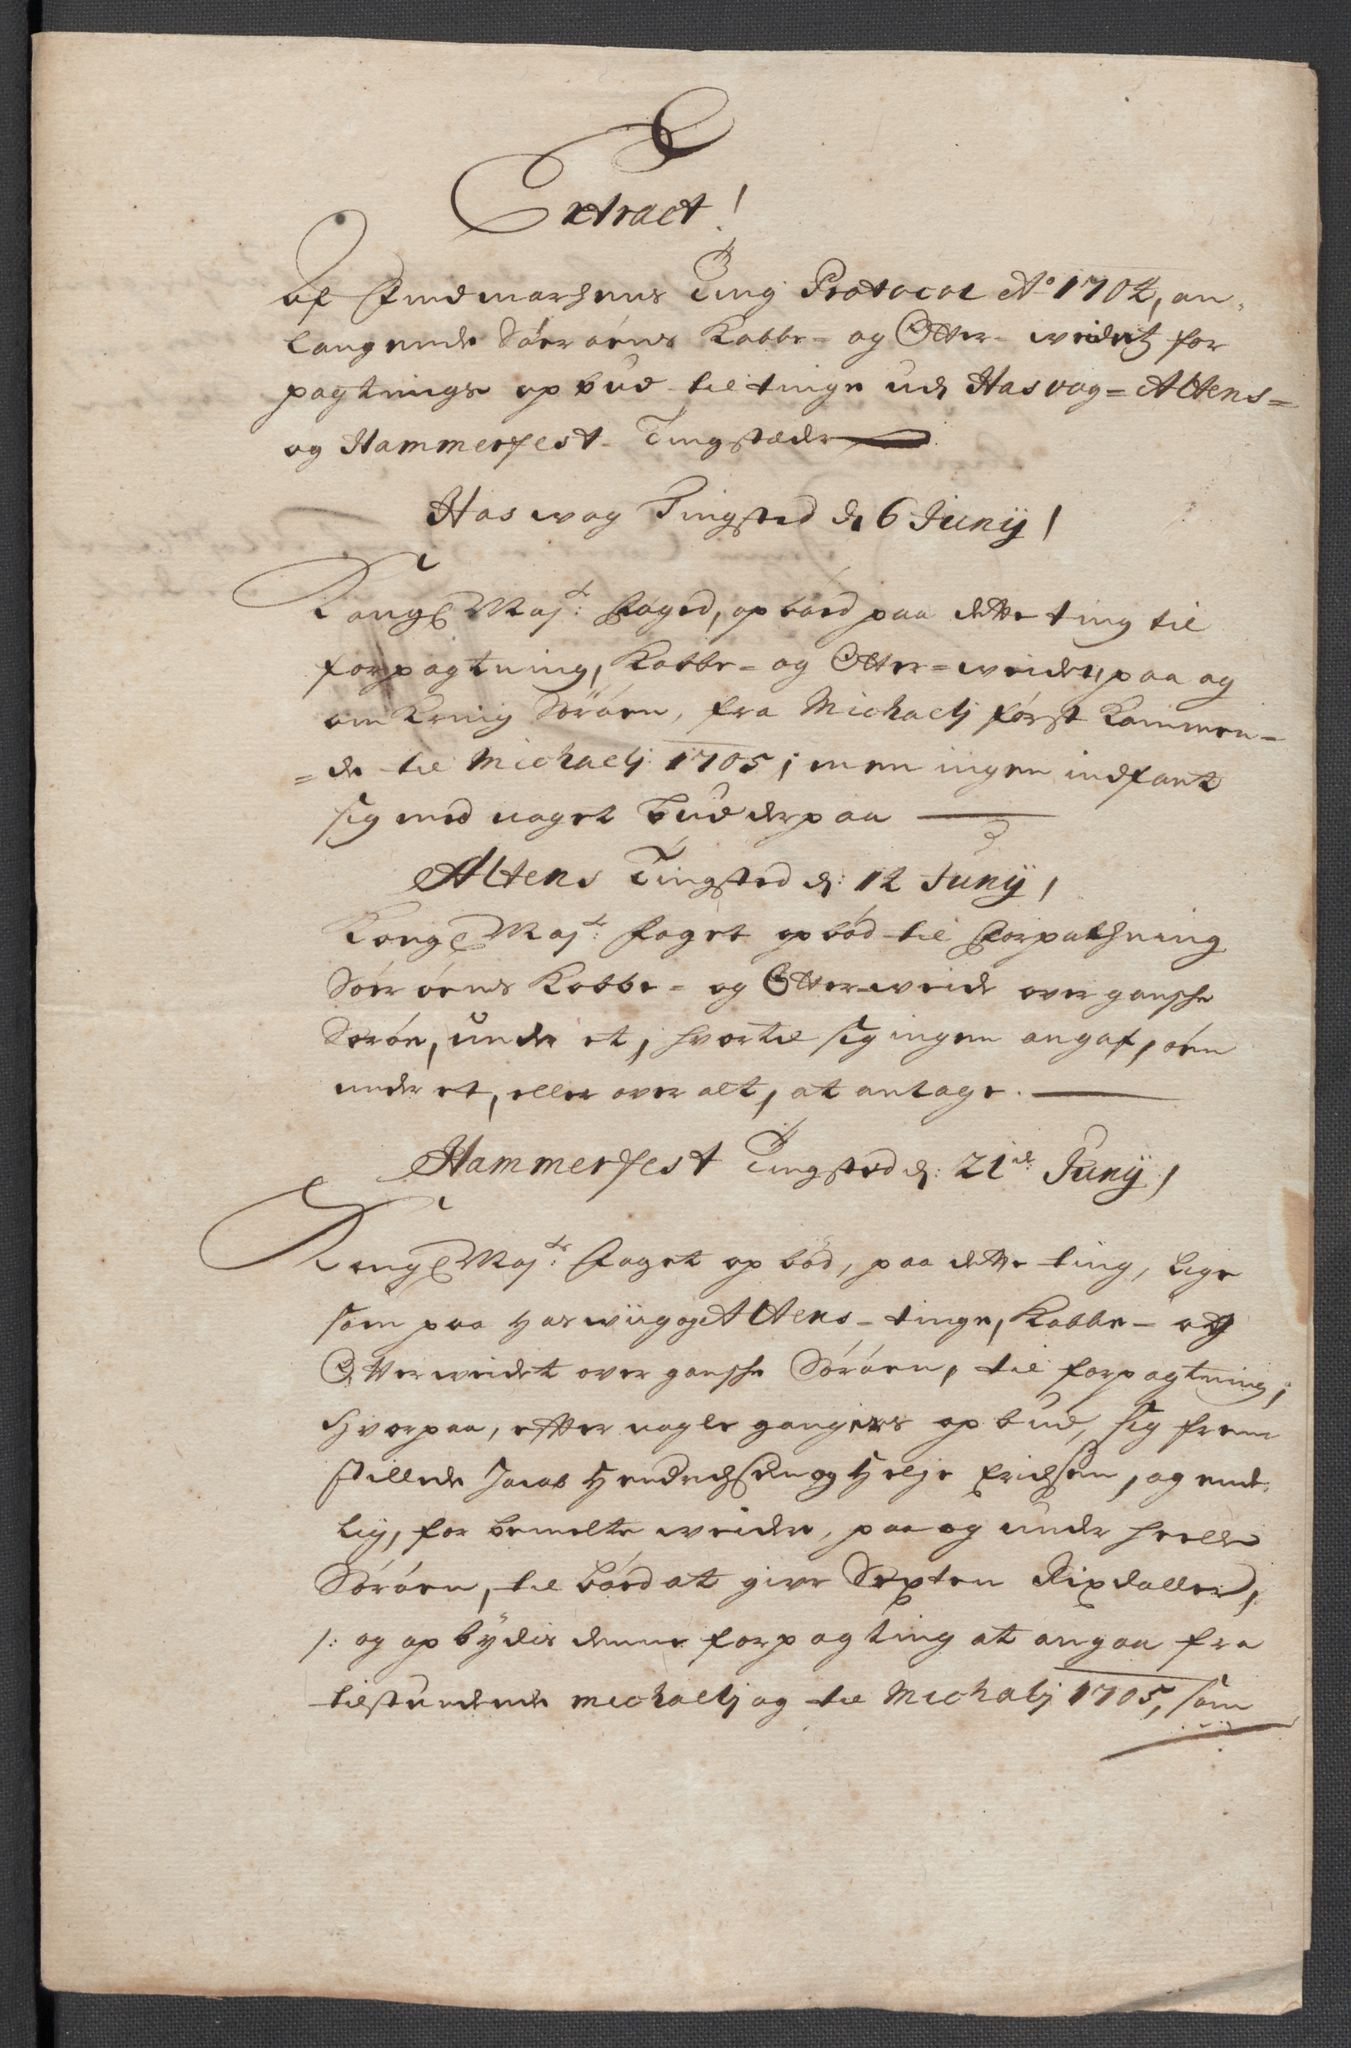 Extract!
Af Findmarchens Ting Protocol Ao 1702, an-
langende Söeröens Kobbe- og Otter- weidetz for
pagtnings opbud til tinge udj Hasvog- Altens-
og Hammerfest- Tingstæder
Haswog Tingsted d. 6 Junij!
Kongl Majts: Foged, opböed paa dette ting til
forpagtning, Kobbe- og Otter-weiden, paa og
omkring Söröen, fra Michaelj först kommen-
=de til Michaelj 1705; men ingen indfant
sig med noget bud derpaa
Altens Tingsted d: 12 Junij,
Kongl Majts: foget opböd til Forpachning
Söeröens Kobbe- og Otter-weide over gansche
Söröe, under et, hvortil sig ingen angaf, öen
under et, eller over alt, at antage.
Hammerfest Tingsted d: 21de: Junij,
Kongl Majts: Foget opböd, paa dette ting, lige
som paa Haswiig og Altens- tinge, Kobbe- og
Otterweidet over gansche Söröen, til forpagtning;
hvorpaa, efter nogle gangers opbud, sig frem
stillede Jacob Hendrichsen og Helje Erichsen, og ende-
lig, for bemelte weide, paa og under heele
Söröen, til böed at give Sexten Rixdaller,
/: og opbydis denne forpagting at angaa fra
tilstundende Michaelj og til Michalj 1705, som